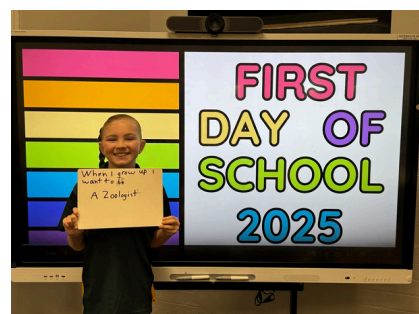 FIRST
DAY OF
SCHOOL
2025
When I grow up I
want to be
A Zoologist